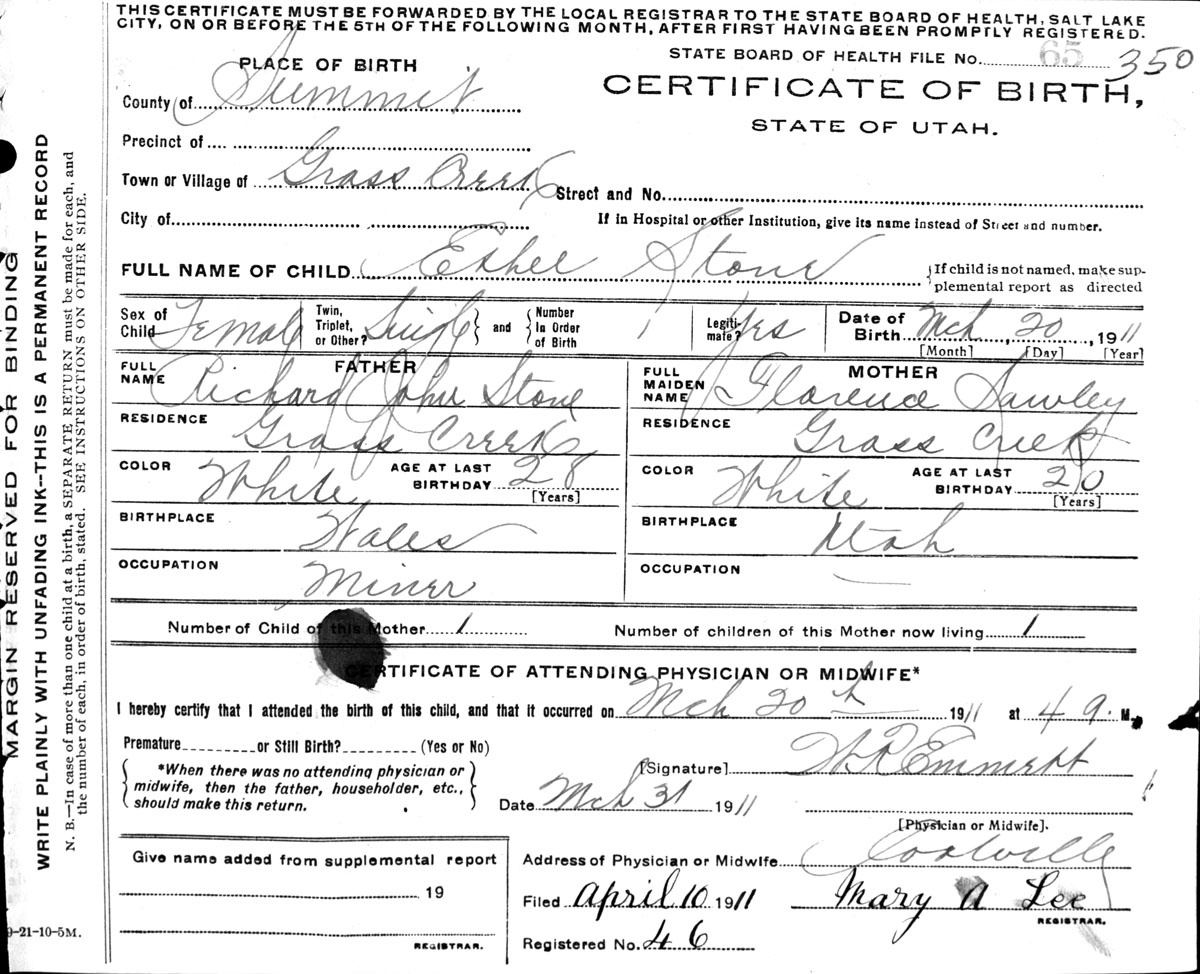 THIS CERTIFICATE MUST BE FORWARDED BY THE LOCAL REGISTRAR TO THE STATE BOARD OF HEALTH, SALT LAKE
CITY, ON OR BEFORE THE 5TH OF THE FOLLOWING MONTH, AFTER FIRST HAVING BEEN PROMPTLY REGISTERED.
STATE BOARD OF HEALTH FILE No. 65 350
PLACE OF BIRTH
CERTIFICATE OF BIRTH,
STATE OF UTAH.
County of Summit
Precinct of
Town or Village of Grass Creek Street and No.
City of If in Hospital or other Institution, give its name instead of Street and number.
FULL NAME OF CHILD Ethel Stone {If child is not named, make sup-
plemental report as directed
Sex of Child Female Twin, Triplet, or Other? Single and Number In Order of Birth 1 Legiti-mate? Yes Date of Birth Mch 20, 1911
[Month] [Day] [Year]
FATHER MOTHER
FULL NAME Richard John Stone FULL MAIDEN NAME Florence Sawley
RESIDENCE Grass Creek RESIDENCE Grass Creek
COLOR White AGE AT LAST BIRTHDAY 28 [Years] COLOR White AGE AT LAST BIRTHDAY 20 [Years]
BIRTHPLACE Wales BIRTHPLACE Utah
OCCUPATION Miner OCCUPATION —
Number of Child of this Mother 1 Number of children of this Mother now living 1
CERTIFICATE OF ATTENDING PHYSICIAN OR MIDWIFE*
I hereby certify that I attended the birth of this child, and that it occurred on Mch 20th 1911 at 4 a. M.
Premature or Still Birth? (Yes or No)
*When there was no attending physician or
midwife, then the father, householder, etc.,
should make this return.
[Signature] Emmett
Date Mch 31 1911
[Physician or Midwife].
Give name added from supplemental report
19
REGISTRAR.
Address of Physician or Midwife Coalville
Filed April 10 1911 Mary A Lee
REGISTRAR.
Registered No. 46
9-21-10-5M.
MARGIN RESERVED FOR BINDING
WRITE PLAINLY WITH UNFADING INK--THIS IS A PERMANENT RECORD
N. B.—In case of more than one child at a birth, a SEPARATE RETURN must be made for each, and
the number of each, in order of birth, stated. SEE INSTRUCTIONS ON OTHER SIDE.